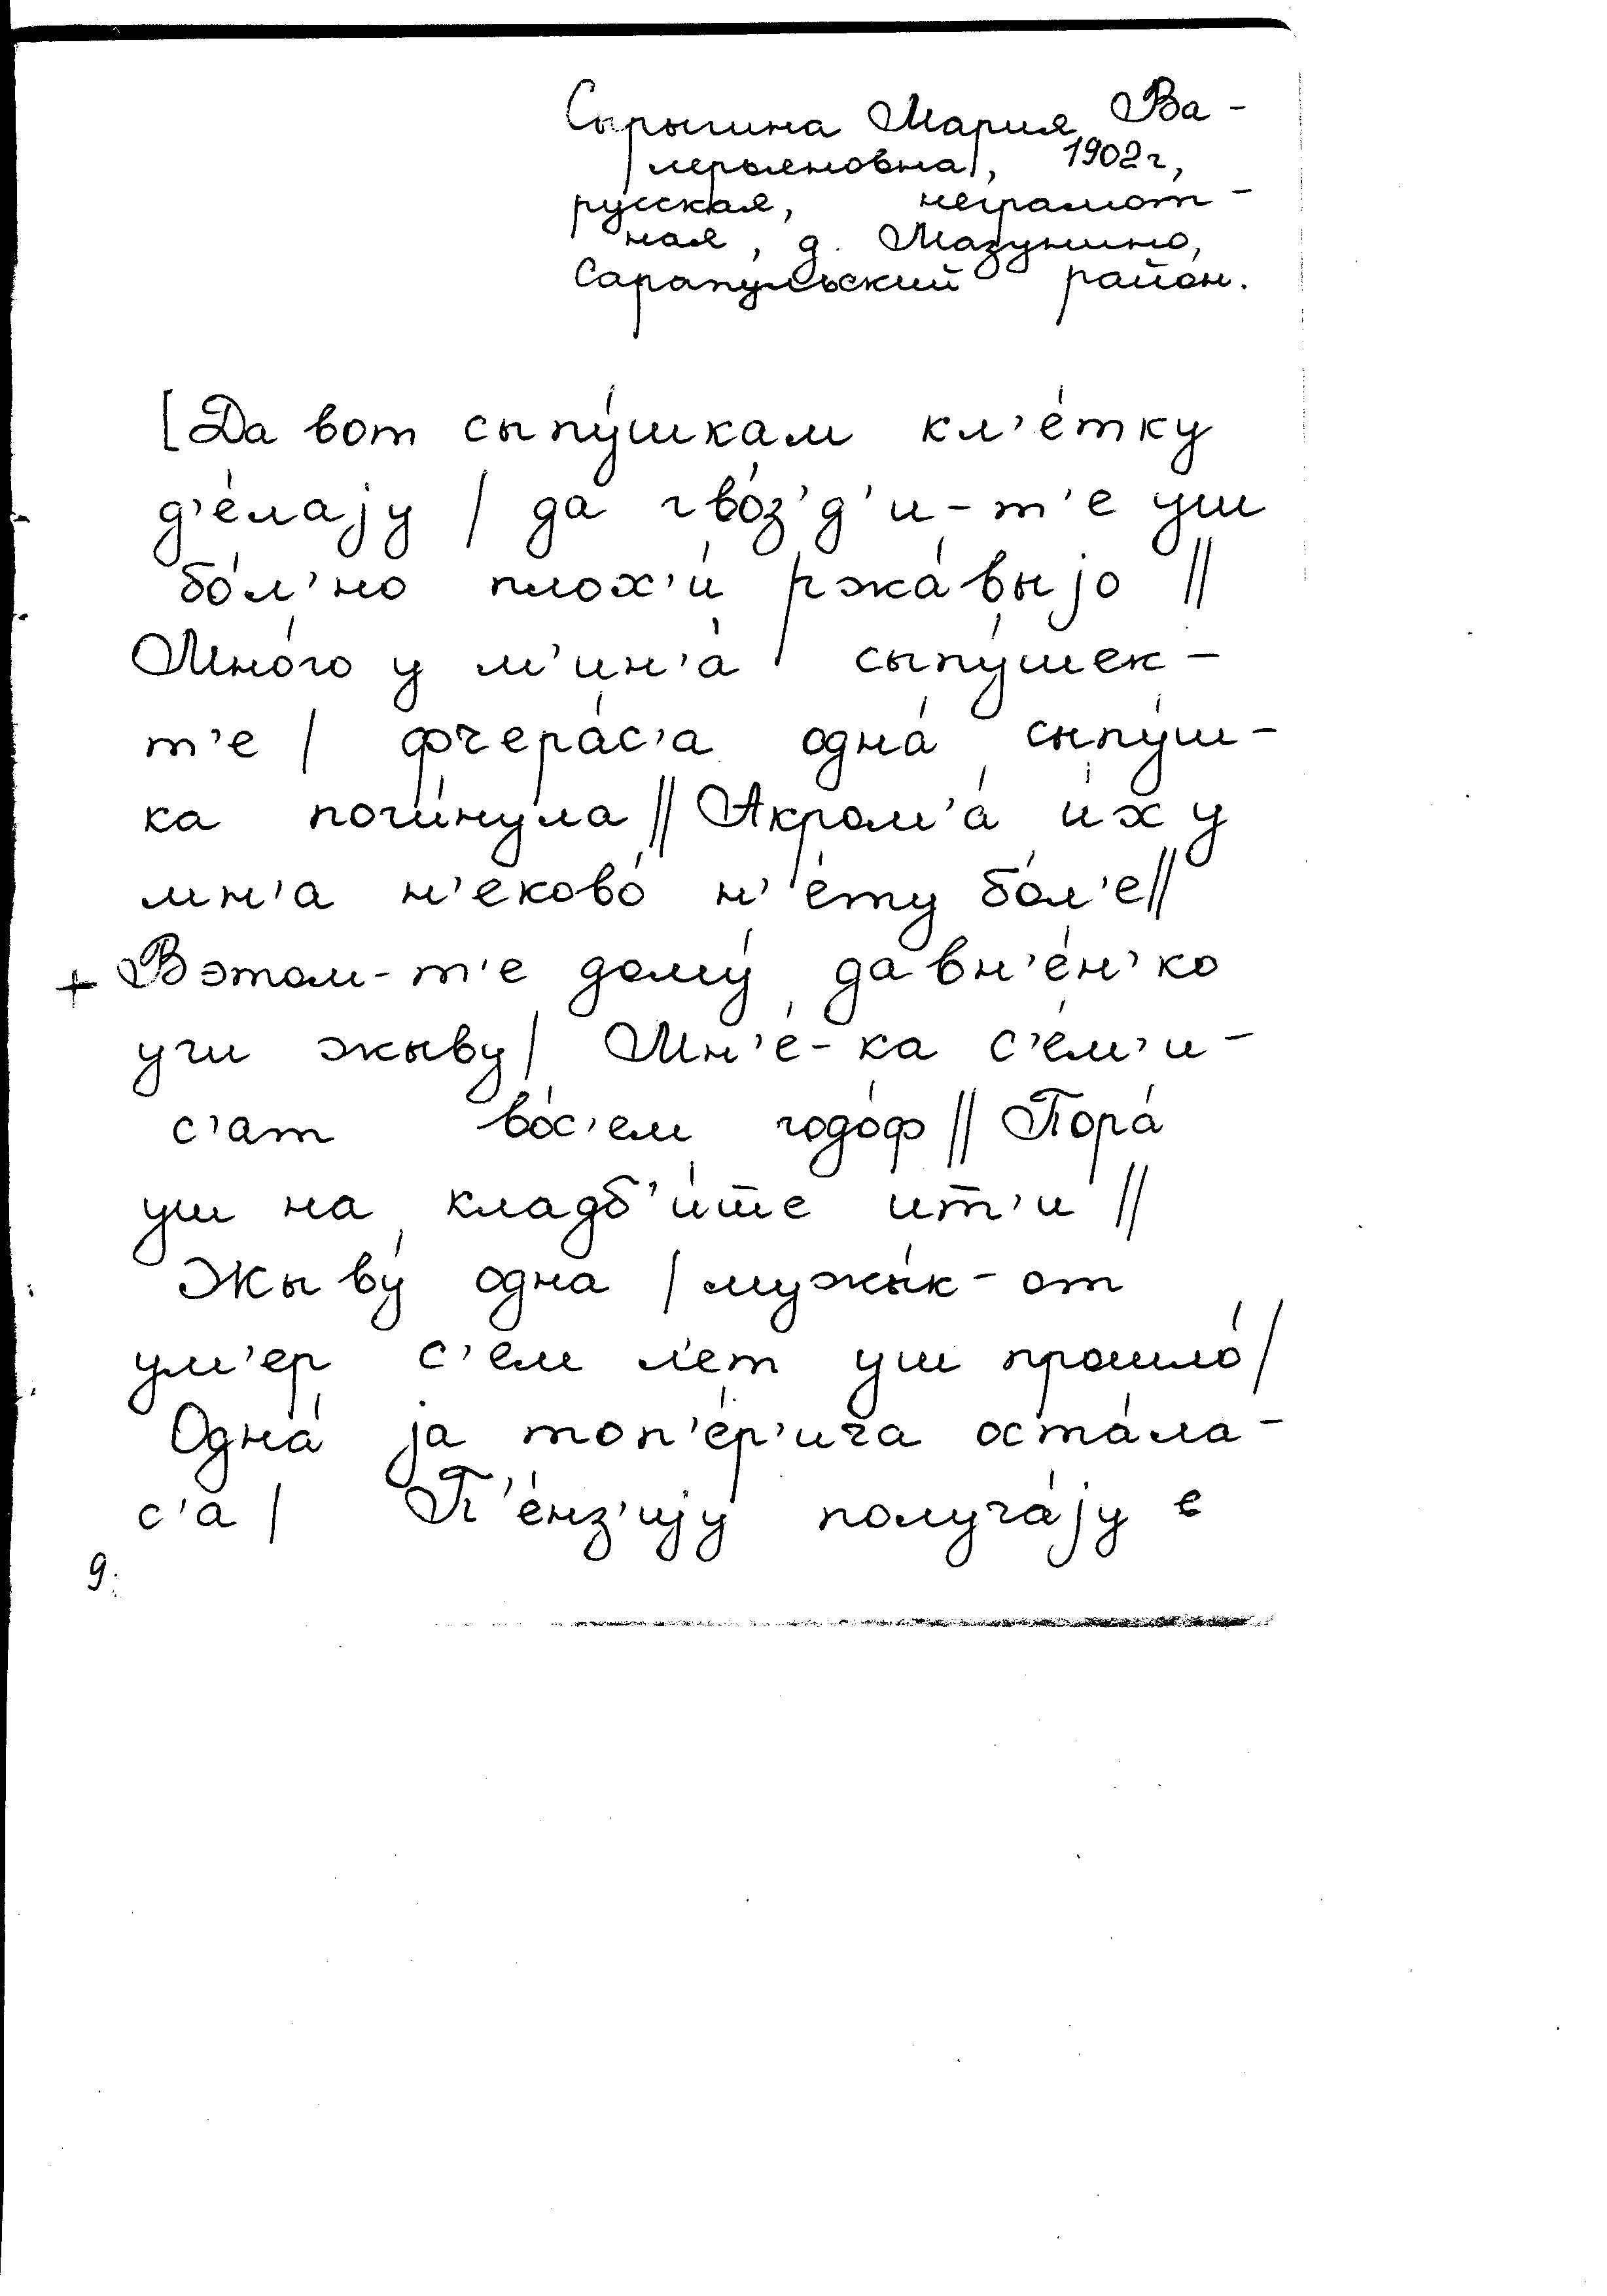 Сырыгина Мария Ва-
лерьяновна, 1902г,
русская, неграмот-
ная, д. Мазунино,
Сарапульский район.
[Да вот сыпу́шкам кл'е́тку
д'е́лаjу / да гво́з'д'и-т'е уш
бо́л'но плох'и́ ржа́выjо //
Мно́го у м'ин'а́ сыпу́шек-
т'е / фчера́с'а одна́ сыпу́ш-
ка поги́нула // Акром'а́ и́х у
мн'а н'еково́ н'е́ту бо́л'е //
+ Вэтом-т'е дому́ давн'е́н'ко
учи жыву / Мн'е́-ка с'е́м'и-
с'ат во́с'ем годо́ф // Пора́
уш на кладб'и́ш̅е ит̅'и //
Жыву́ одна / мужы́к-от
ум'ер с'ем л'ет уш прошло́ /
Одна́ jа топ'е́р'ича оста́ла-
с'а / П'е́нз'иjу получа́jу с
9.